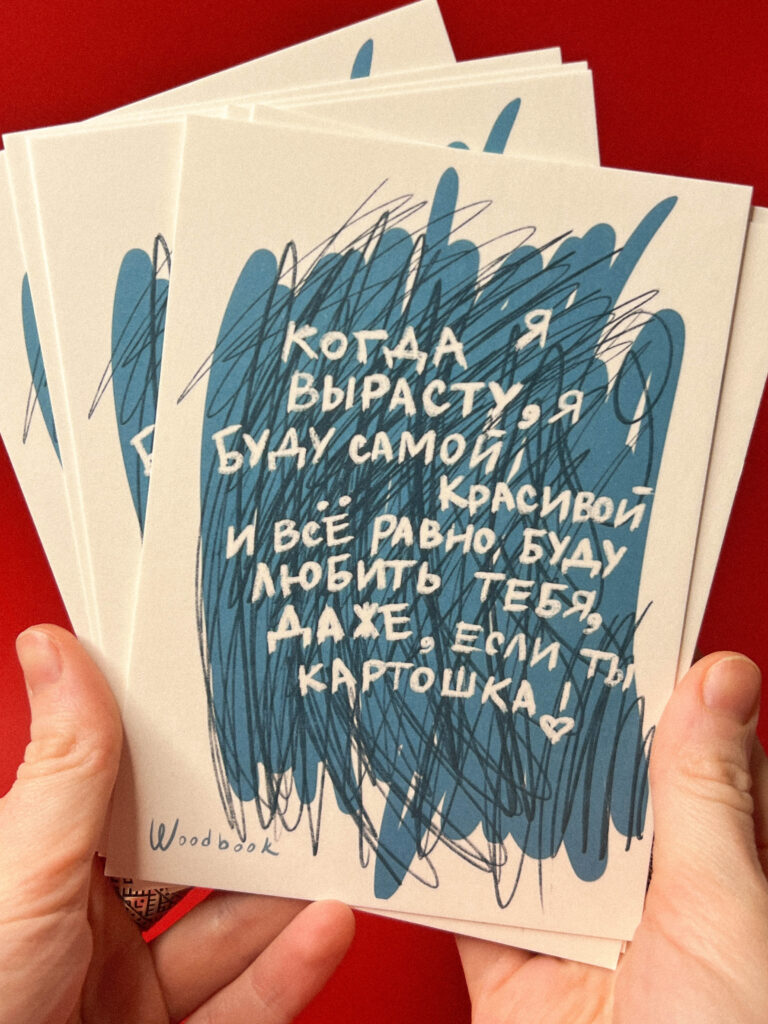 КОГДА Я
ВЫРАСТУ, Я
БУДУ САМОЙ
КРАСИВОЙ
И ВСЁ РАВНО БУДУ
ЛЮБИТЬ ТЕБЯ,
ДАЖЕ, ЕСЛИ ТЫ
КАРТОШКА!
Woodbook